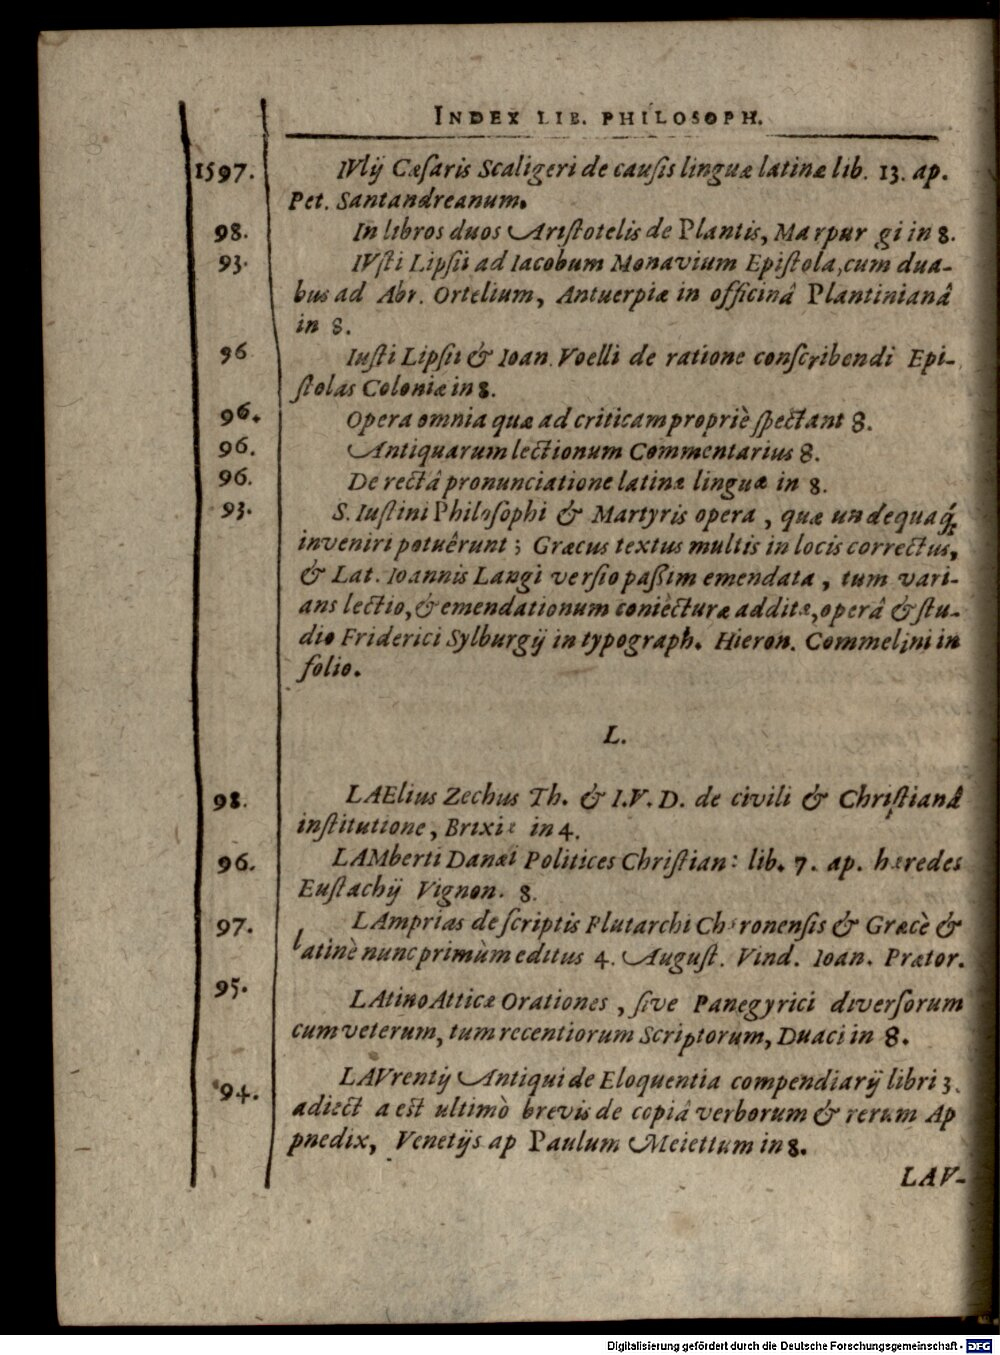 INDEX LIB. PHILOSOPH.
1597. IVlij Cæſaris Scaligeri de cauſis linguæ latinæ lib. 13. ap.
Pet. Santandreanum.
98. In libros duos Ariſtotelis de Plantis, Marpur gi in 8.
93. IVſti Lipſii ad Iacobum Monavium Epiſtola, cum dua-
bus ad Abr. Ortelium, Antuerpiæ in officinâ Plantinianâ
in 8.
96 Iuſti Lipſii & Ioan. Voelli de ratione conſcribendi Epi-
ſtolas Coloniæ in 8.
96. Opera omnia quæ ad criticam propriè ſpectant 8.
96. Antiquarum lectionum Commentarius 8.
96. De rectâ pronunciatione latinæ linguæ in 8.
93. S. Iuſtini Philoſophi & Martyris opera, quæ undequaq́;
inveniri potuêrunt; Græcus textus multis in locis correctus,
& Lat. Ioannis Langi verſio paßim emendata, tum vari-
ans lectio, & emendationum coniècturæ additæ, operâ & ſtu-
dio Friderici Sylburgij in typograph. Hieron. Commelini in
folio.
L.
98. LAElius Zechus Th. & I.V.D. de civili & Chriſtianâ
inſtitutione, Brixiæ in 4.
96. LAMberti Danæi Politices Chriſtian: lib. 7. ap. hæredes
Euſtachij Vignon. 8.
97. LAmprias de ſcriptis Plutarchi Chæronenſis & Græcè &
latinè nunc primùm editus 4. Auguſt. Vind. Ioan. Prætor.
95. LAtino Atticæ Orationes, ſive Panegyrici diverſorum
cum veterum, tum recentiorum Scriptorum, Duaci in 8.
94. LAVrentij Antiqui de Eloquentia compendiarij libri 3.
adiect a est ultimò brevis de copiâ verborum & rerum Ap
pnedix, Venetijs ap Paulum Meiettum in 8.
LAV-
Digitalisierung gefördert durch die Deutsche Forschungsgemeinschaft - DFG